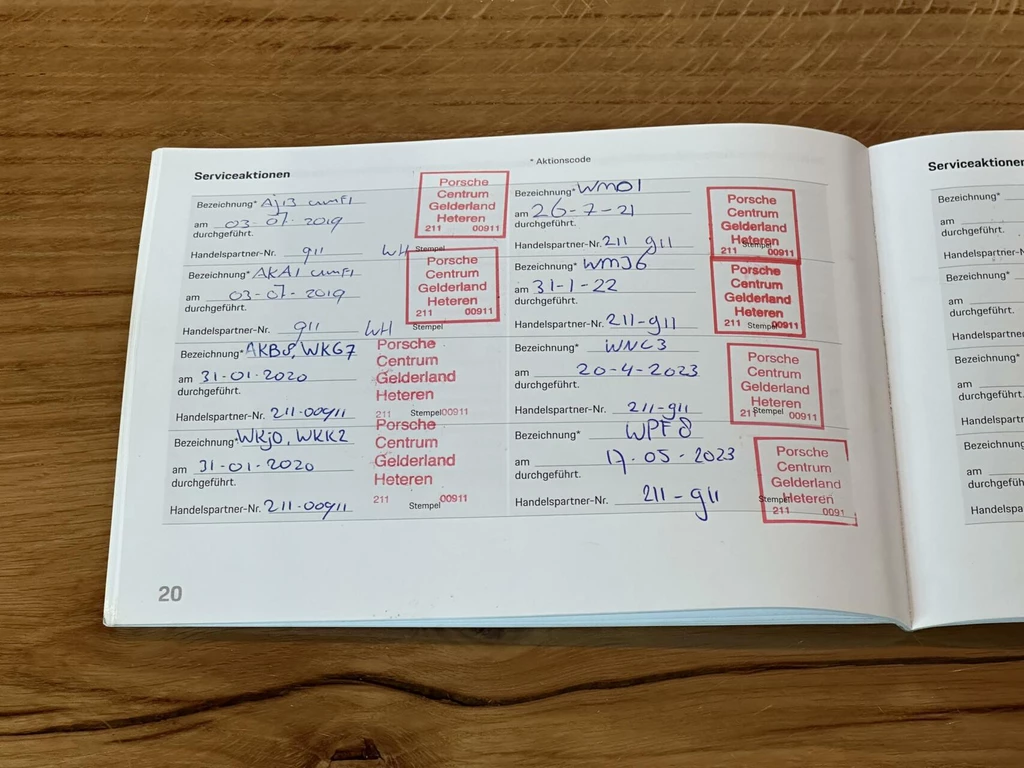 Serviceaktionen
* Aktionscode
Bezeichnung* AJ13
am 03-07-2019
durchgeführt.
Handelspartner-Nr. 911 WH Stempel
Porsche
Centrum
Gelderland
Heteren
211 00911
Bezeichnung* AKA1
am 03-07-2019
durchgeführt.
Handelspartner-Nr. 911 WH Stempel
Porsche
Centrum
Gelderland
Heteren
211 00911
Bezeichnung* AKB8, WKG7
am 31-01-2020
durchgeführt.
Handelspartner-Nr. 211-00911 Stempel
Porsche
Centrum
Gelderland
Heteren
211 00911
Bezeichnung* WKJ0, WKK2
am 31-01-2020
durchgeführt.
Handelspartner-Nr. 211-00911 Stempel
Porsche
Centrum
Gelderland
Heteren
211 00911
Bezeichnung* WM01
am 26-7-21
durchgeführt.
Handelspartner-Nr. 211 911 Stempel
Porsche
Centrum
Gelderland
Heteren
211 00911
Bezeichnung* WMJ6
am 31-1-22
durchgeführt.
Handelspartner-Nr. 211-911 Stempel
Porsche
Centrum
Gelderland
Heteren
211 00911
Bezeichnung* WNC3
am 20-4-2023
durchgeführt.
Handelspartner-Nr. 211-911 Stempel
Porsche
Centrum
Gelderland
Heteren
211 00911
Bezeichnung* WPF8
am 17-05-2023
durchgeführt.
Handelspartner-Nr. 211-911 Stempel
Porsche
Centrum
Gelderland
Heteren
211 0091
20
Serviceaktionen
Bezeichnung*
am
durchgeführt.
Handelspartner-N
Bezeichnung*
am
durchgeführt.
Handelspartner
Bezeichnung*
am
durchgeführt
Handelspartn
Bezeichnung
am
durchgefüh
Handelspa